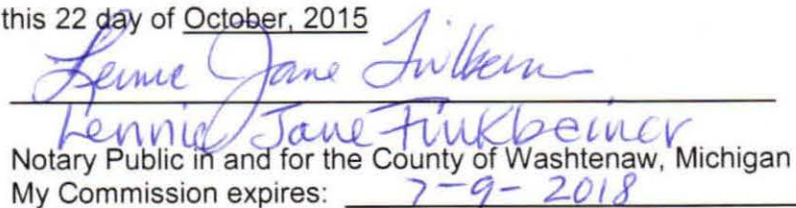 this 22 day of October, 2015
Lennie Jane
Lennie Jane Finkbeiner
Notary Public in and for the County of Washtenaw, Michigan
My Commission expires: 7-9-2018